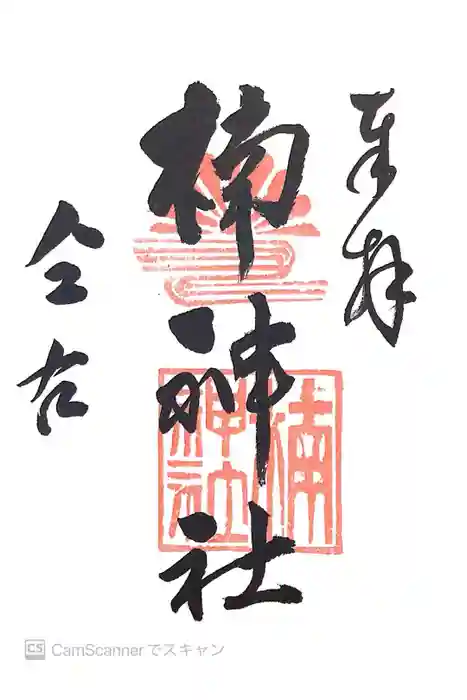 奉拝
楠神社
楠神社
CS CamScannerでスキャン